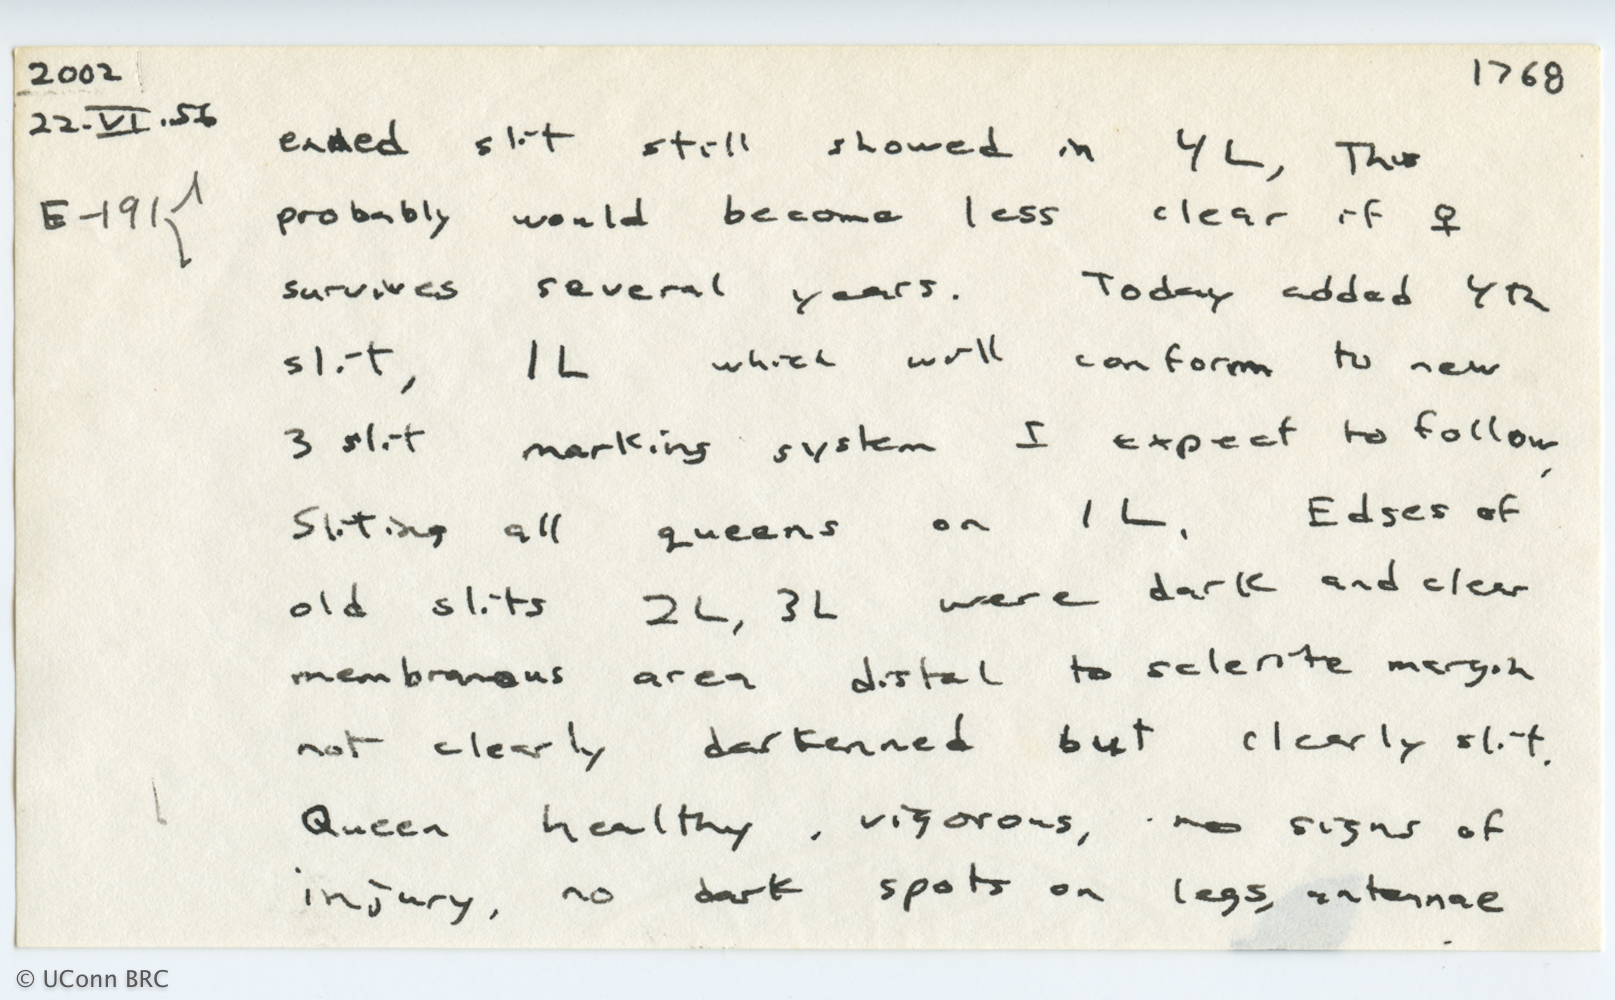 2002
1768
22.VI.56
ended slit still showed in 4L, This
E-191 probably would become less clear if ♀
survives several years. Today added 4R
slit, 1L which will conform to new
3 slit marking system I expect to follow,
Sliting all queens on 1L. Edges of
old slits 2L, 3L were dark and clear
membranous area distal to sclerite margin
not clearly darkenned but clearly slit.
Queen healthy, vigorous, no signs of
injury, no dark spots on legs, antennae
© UConn BRC